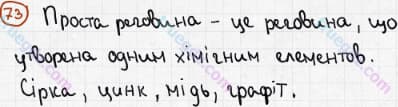 73 Проста речовина - це речовина, що
утворена одним хімічним елементов.
Сірка, цинк, мідь, графіт.